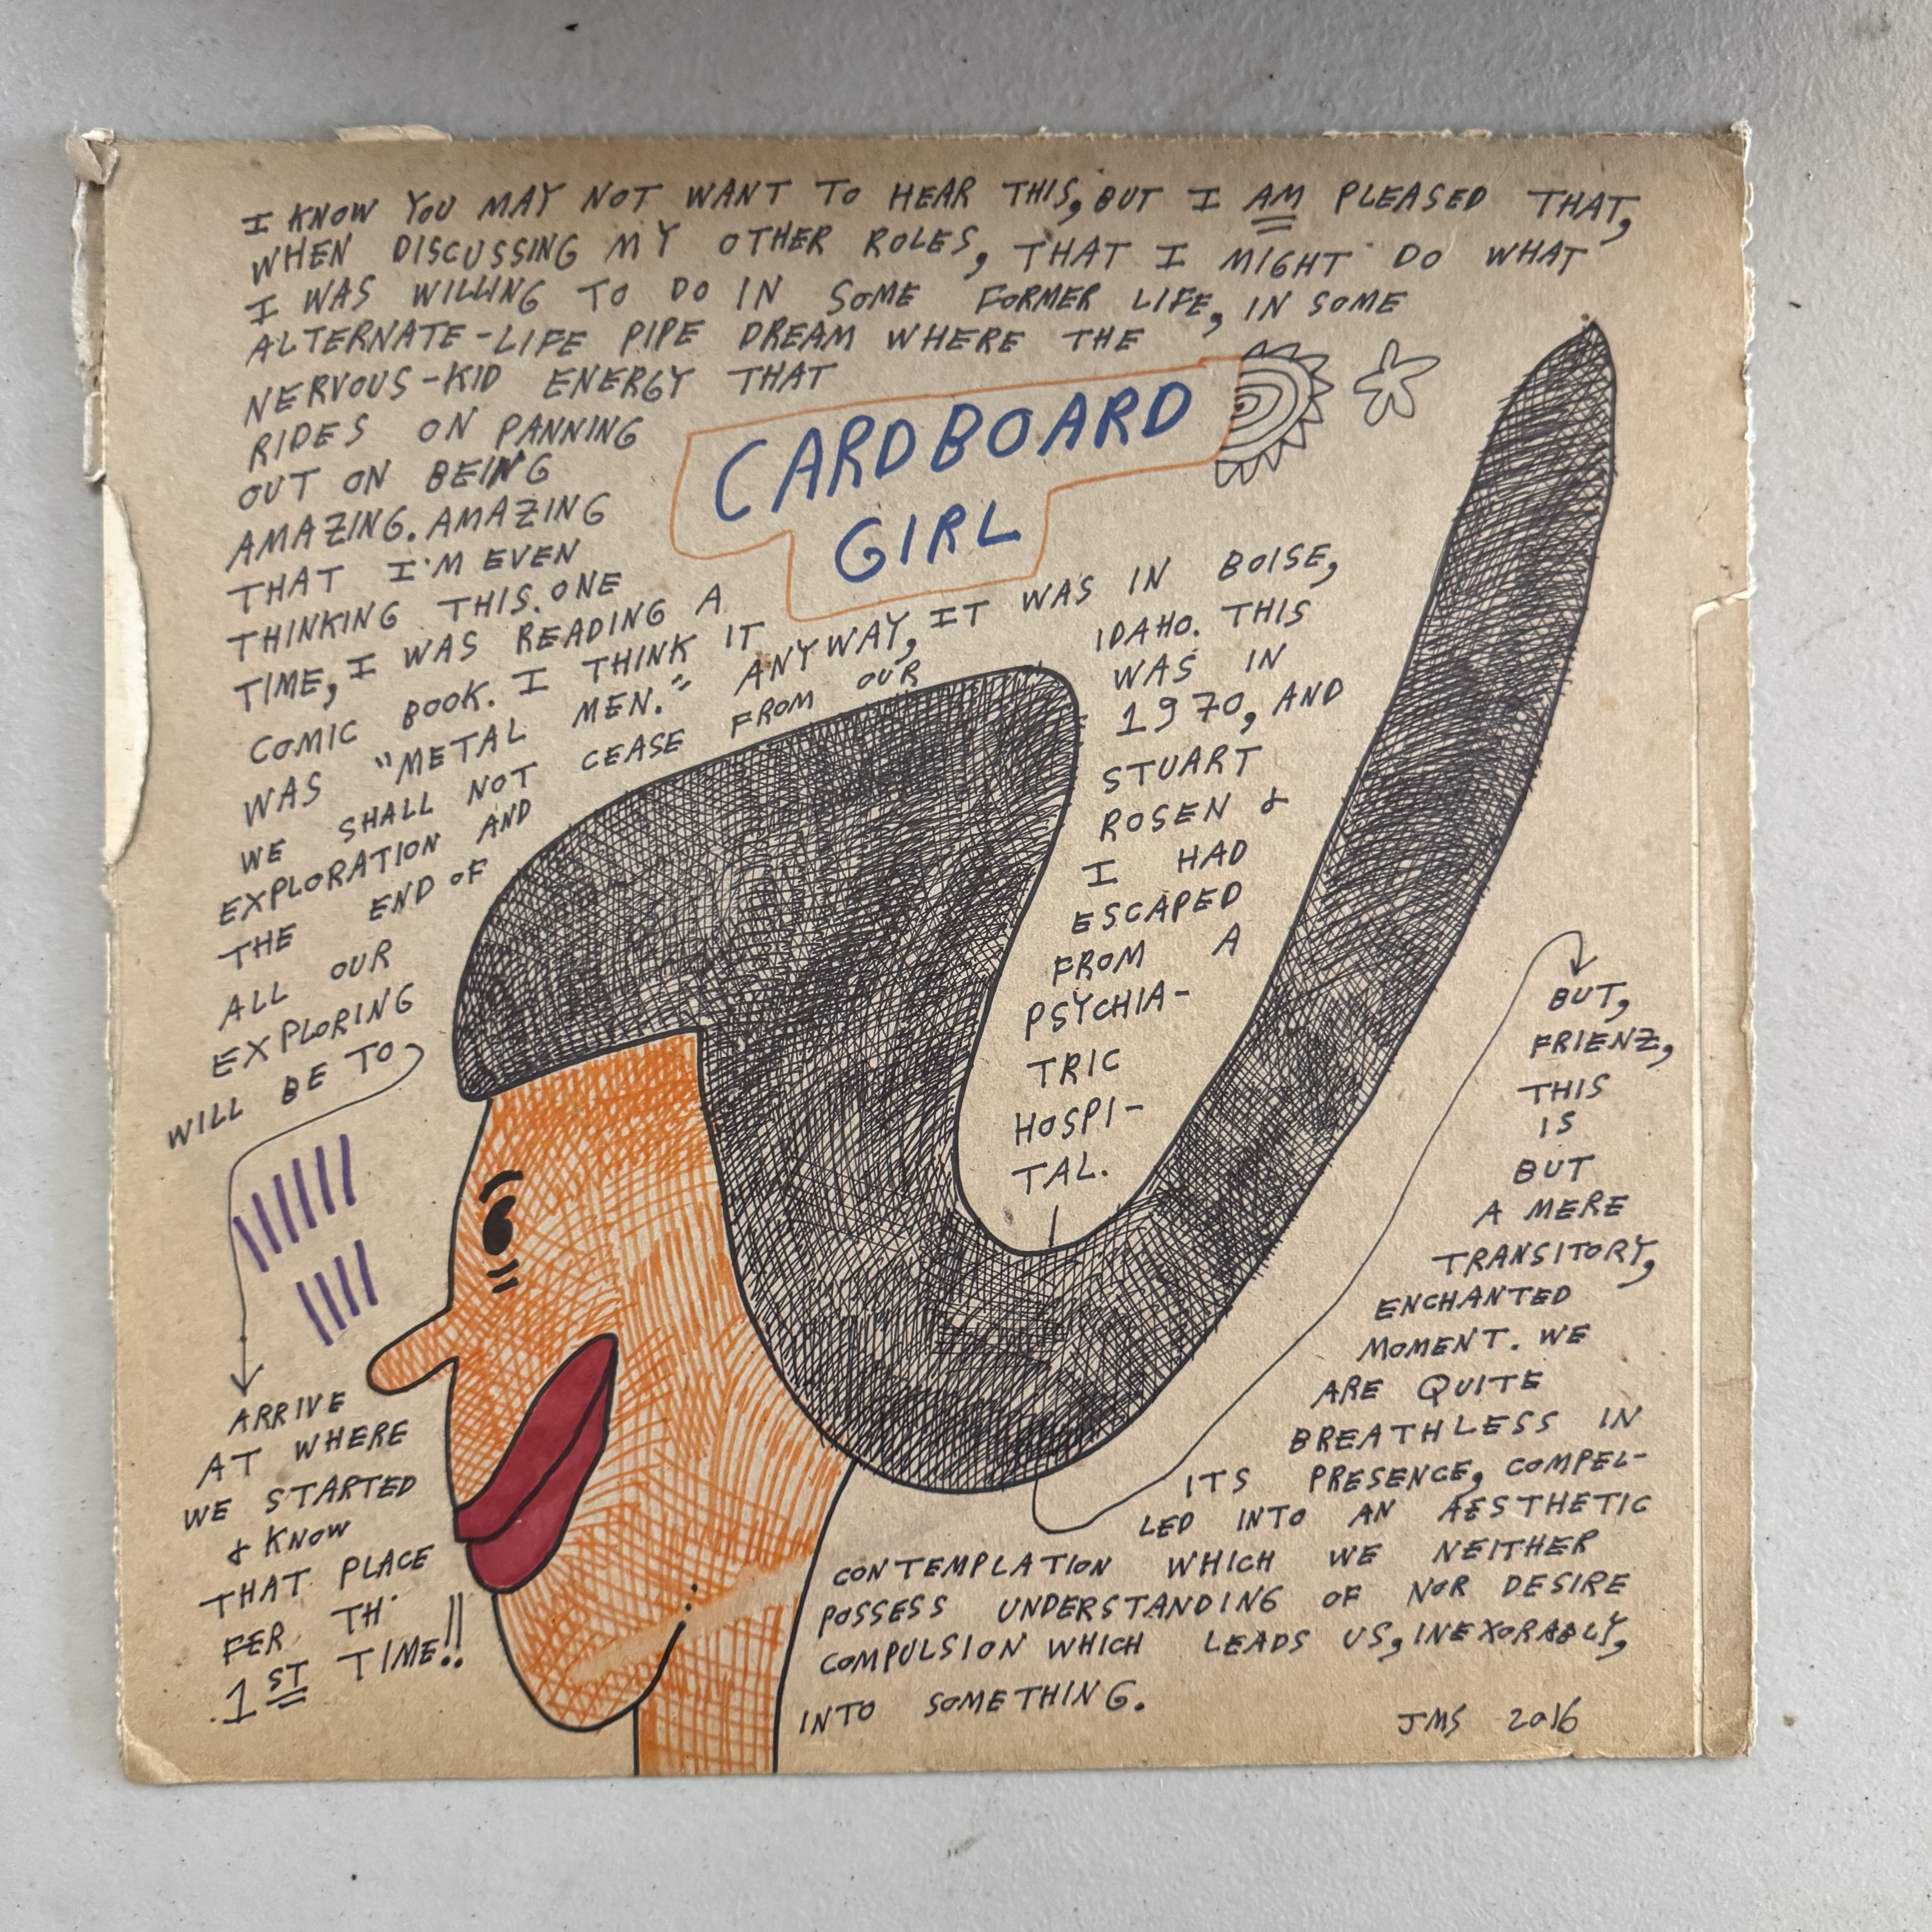 I KNOW YOU MAY NOT WANT TO HEAR THIS, BUT I AM PLEASED THAT,
WHEN DISCUSSING MY OTHER ROLES, THAT I MIGHT DO WHAT
I WAS WILLING TO DO IN SOME FORMER LIFE, IN SOME
ALTERNATE-LIFE PIPE DREAM WHERE THE
NERVOUS-KID ENERGY THAT
RIDES ON PANNING
OUT ON BEING
AMAZING. AMAZING
THAT I'M EVEN
THINKING THIS. ONE
TIME, I WAS READING A
COMIC BOOK. I THINK IT
WAS "METAL MEN." ANYWAY, IT WAS IN BOISE,
IDAHO. THIS
WAS IN
1970, AND
STUART
ROSEN &
I HAD
ESCAPED
FROM A
PSYCHIA-
TRIC
HOSPI-
TAL.
CARDBOARD
GIRL
WE SHALL NOT CEASE FROM OUR
EXPLORATION AND
THE END OF
ALL OUR
EXPLORING
WILL BE TO
ARRIVE
AT WHERE
WE STARTED
& KNOW
THAT PLACE
FER TH'
1ST TIME!!
BUT,
FRIENZ,
THIS
IS
BUT
A MERE
TRANSITORY,
ENCHANTED
MOMENT. WE
ARE QUITE
BREATHLESS IN
ITS PRESENCE, COMPEL-
LED INTO AN AESTHETIC
CONTEMPLATION WHICH WE NEITHER
POSSESS UNDERSTANDING OF NOR DESIRE
COMPULSION WHICH LEADS US, INEXORABLY,
INTO SOMETHING.
JMS 2016